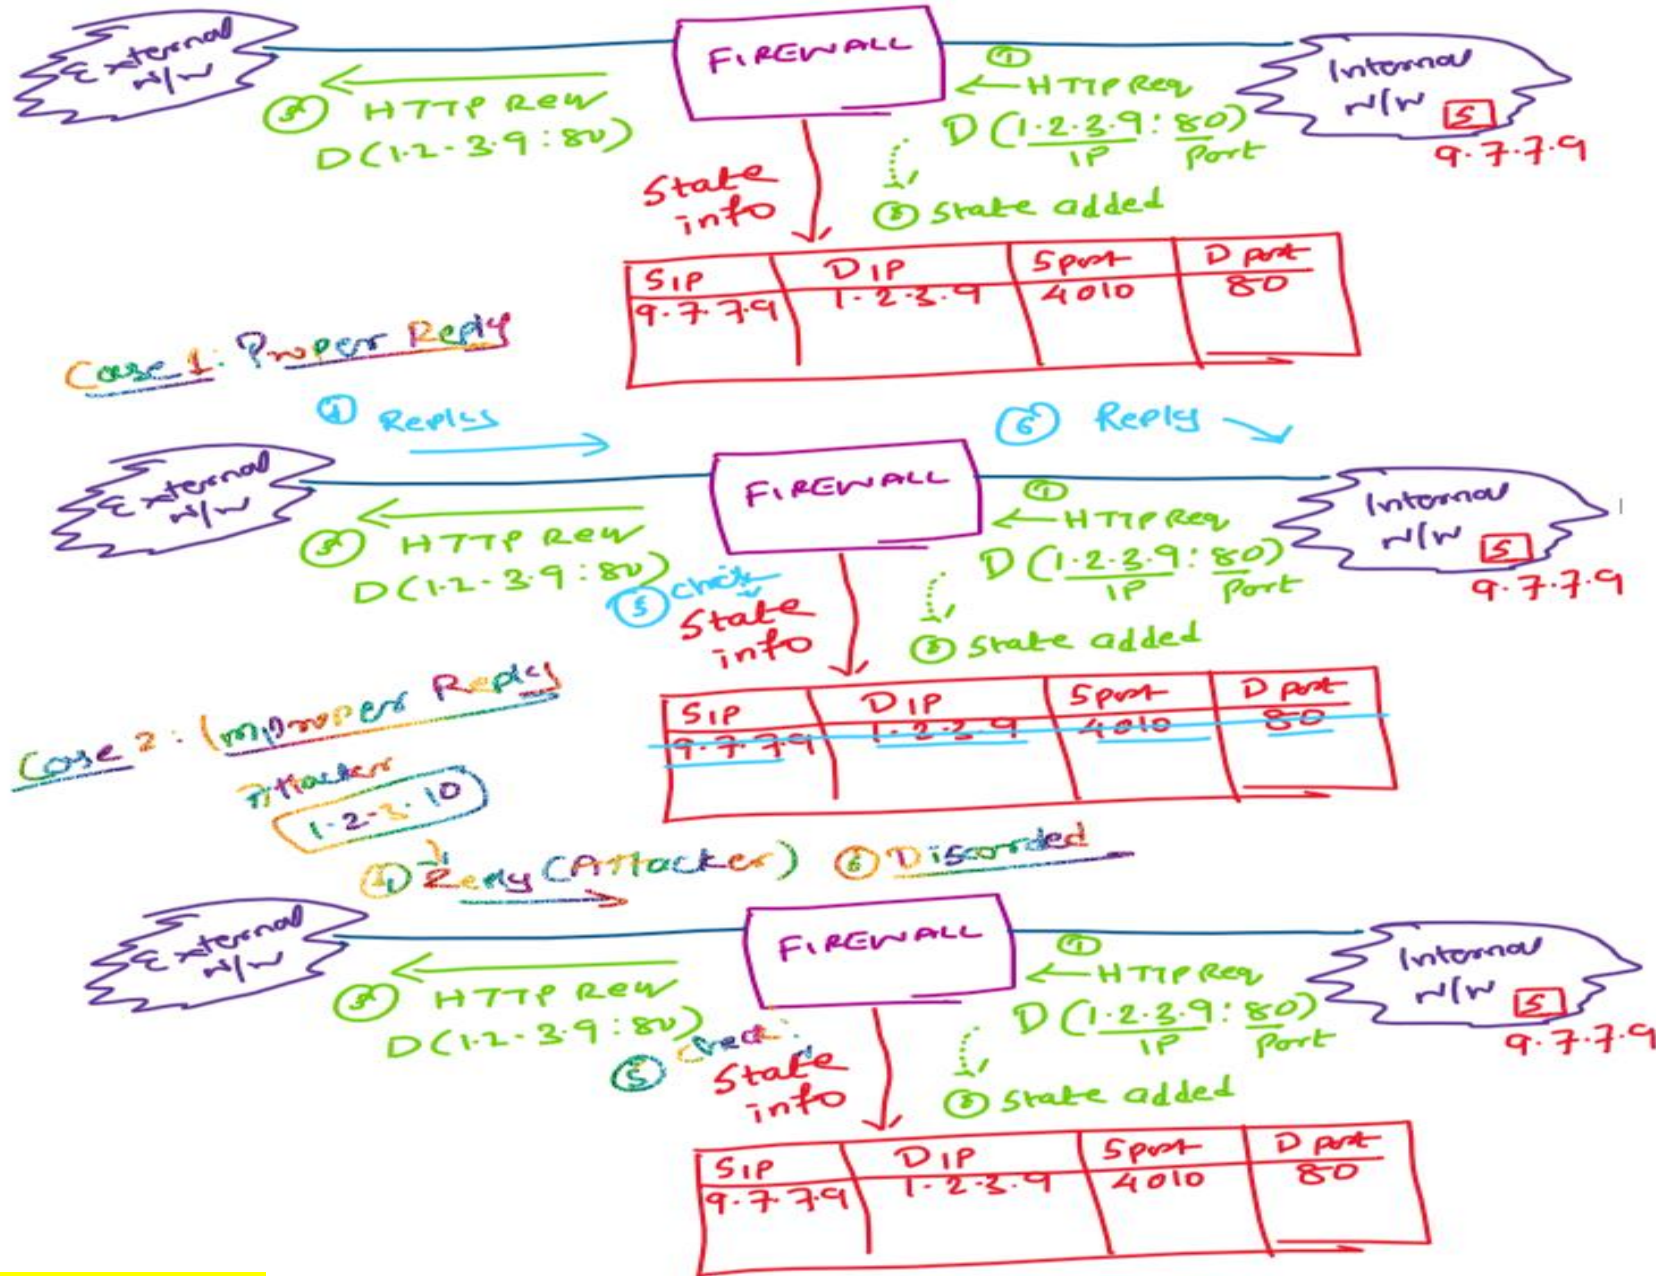 External N/W
FIREWALL
Internal N/W
S
9.7.7.9
① HTTP Req
D (1.2.3.9 : 80)
IP Port
③ HTTP Req
D(1.2.3.9:80)
② State added
State info
SIP DIP Sport D port
9.7.7.9 1.2.3.9 4010 80
Case 1: Proper Reply
④ Reply
⑥ Reply
External N/W
FIREWALL
Internal N/W
S
9.7.7.9
① HTTP Req
D (1.2.3.9 : 80)
IP Port
③ HTTP Req
D(1.2.3.9:80)
② State added
⑤ check
State info
SIP DIP Sport D port
9.7.7.9 1.2.3.9 4010 80
Case 2: Improper Reply
Attacker
1.2.3.10
④ Reply (Attacker)
⑥ Discarded
External N/W
FIREWALL
Internal N/W
S
9.7.7.9
① HTTP Req
D (1.2.3.9 : 80)
IP Port
③ HTTP Req
D(1.2.3.9:80)
② State added
⑤ check:
State info
SIP DIP Sport D port
9.7.7.9 1.2.3.9 4010 80